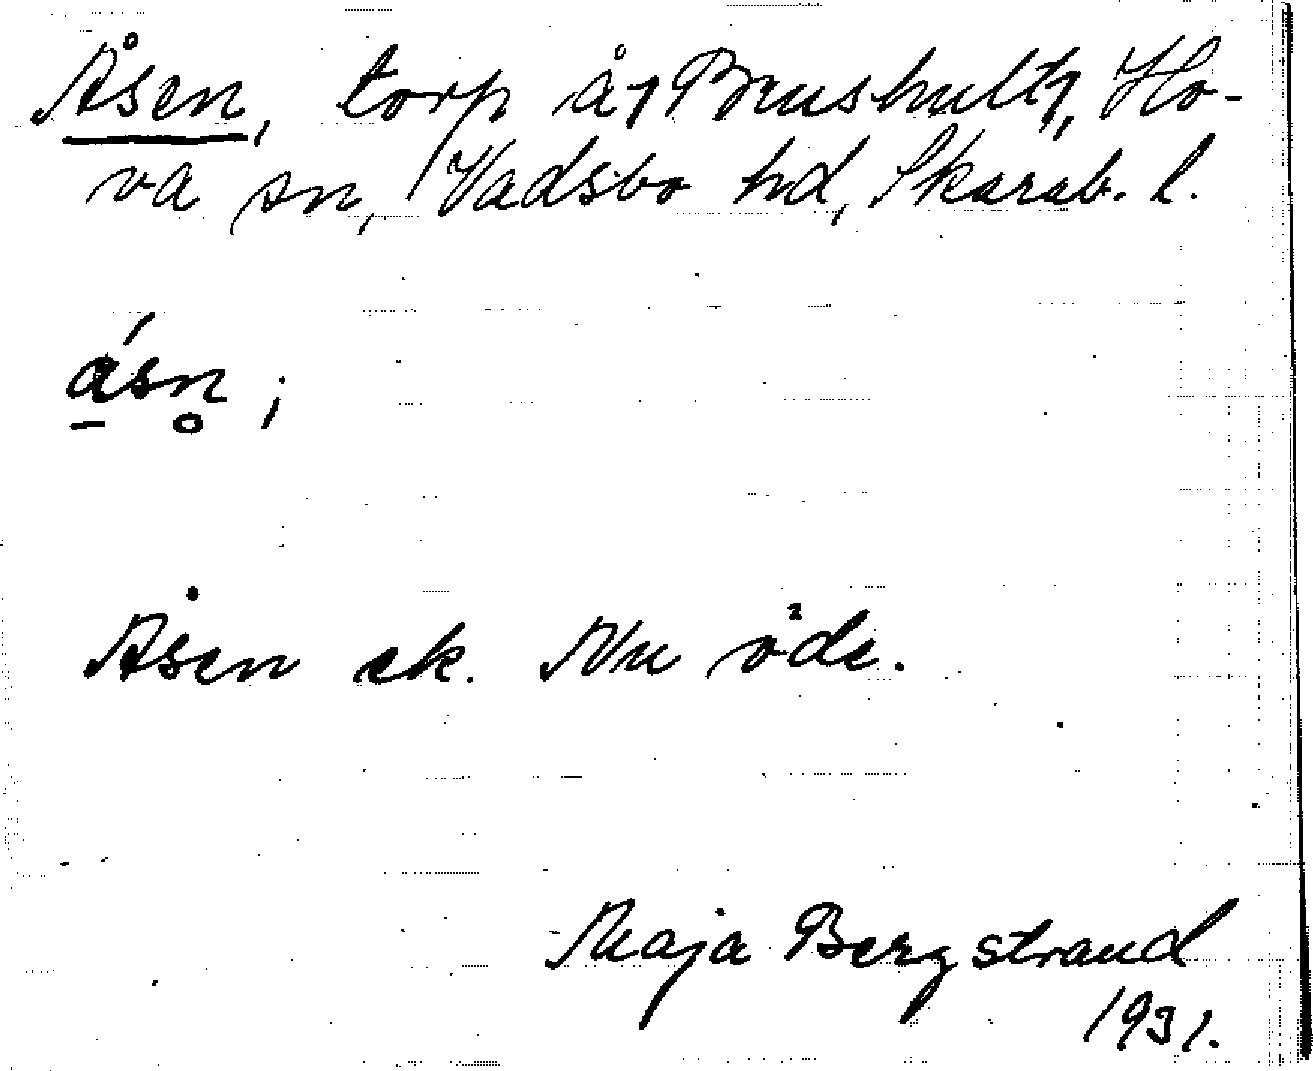 Åsen, torp å Brushult, Ho-
va sn, Vadsbo hd, Skarab. l.
åsn ;
Åsen ek. Nu öde.
Maja Bergstrand
1931.